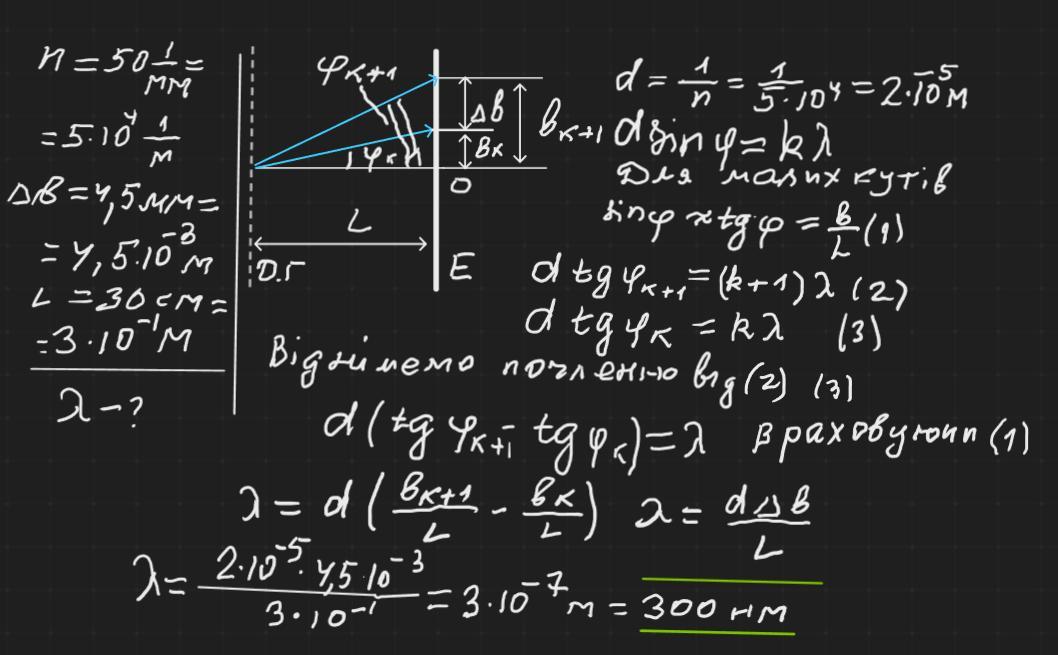 n = 50 1/мм =
= 5·10⁴ 1/м
Δв = 4,5 мм =
= 4,5·10⁻³ м
L = 30 см =
= 3·10⁻¹ м
λ - ?
φк+1
φк
Δв
вк
вк+1
O
L
Д.Г
E
d = 1/n = 1/5·10⁴ = 2·10⁻⁵ м
d sin φ = k λ
Для малих кутів
sin φ ≈ tg φ = в/L (1)
d tg φк+1 = (k+1) λ (2)
d tg φк = k λ (3)
Віднімемо почленно від (2) (3)
d (tg φк+1 - tg φк) = λ враховуючи (1)
λ = d (вк+1/L - вк/L) λ = dΔв/L
λ = 2·10⁻⁵·4,5·10⁻³/3·10⁻¹ = 3·10⁻⁷ м = 300 нм